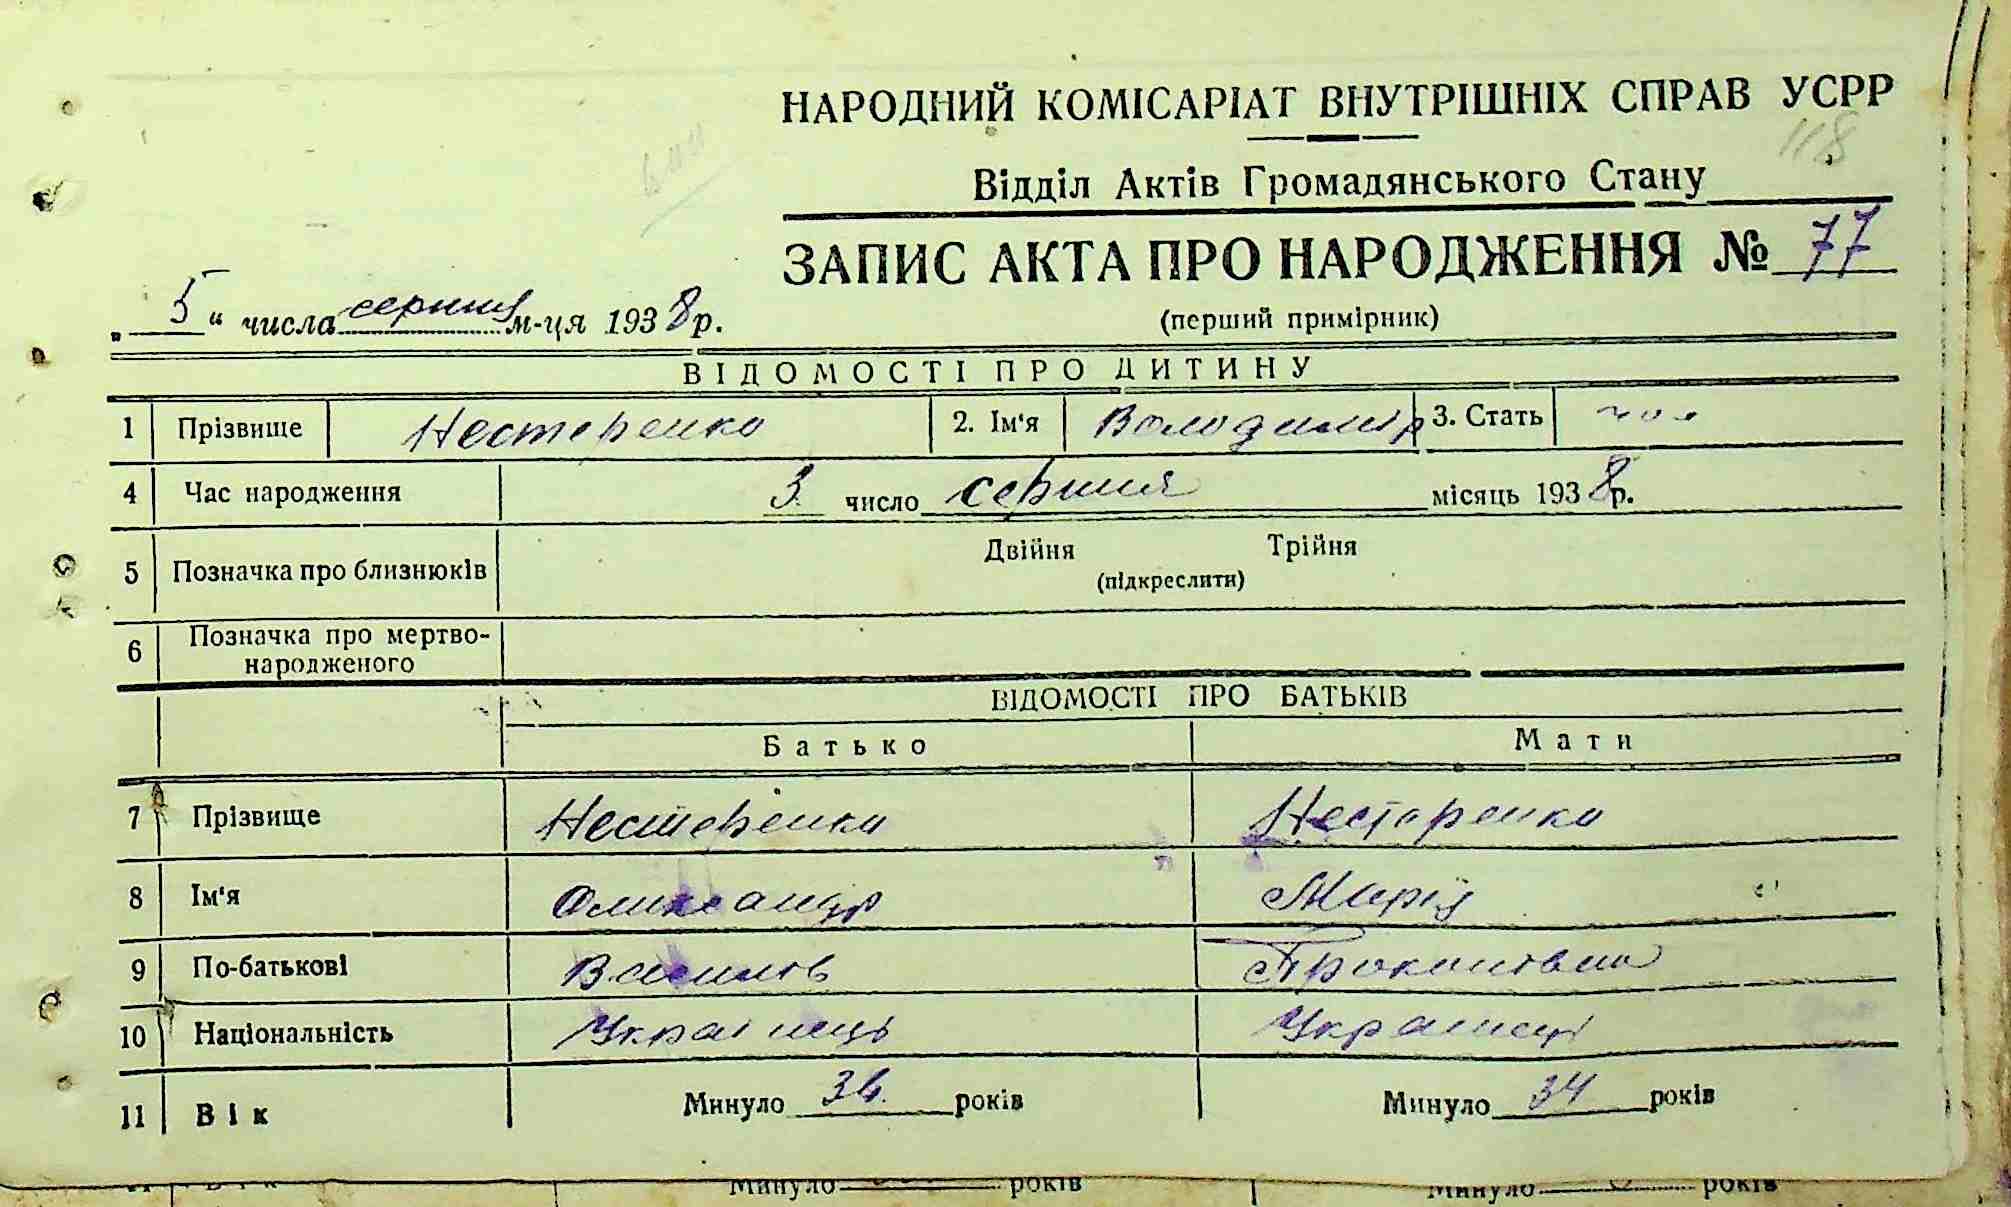 НАРОДНИЙ КОМІСАРІАТ ВНУТРІШНІХ СПРАВ УСРР
118
Відділ Актів Громадянського Стану
ЗАПИС АКТА ПРО НАРОДЖЕННЯ № 77
„ 5 “ числа серпня м-ця 1938 р.
(перший примірник)
ВІДОМОСТІ ПРО ДИТИНУ
1 Прізвище Нестеренко 2. Ім‘я Володимір 3. Стать чол
4 Час народження 3 число серпня місяць 1938 р.
5 Позначка про близнюків Двійня Трійня
(підкреслити)
6 Позначка про мертво-
народженого
ВІДОМОСТІ ПРО БАТЬКІВ
Батько Мати
7 Прізвище Нестеренко Нестеренко
8 Ім‘я Олександр Марія
9 По-батькові Васильов Прокоповна
10 Національність Українець
11 Вік Минуло 34 років Минуло 34 років
Минуло років Минуло років